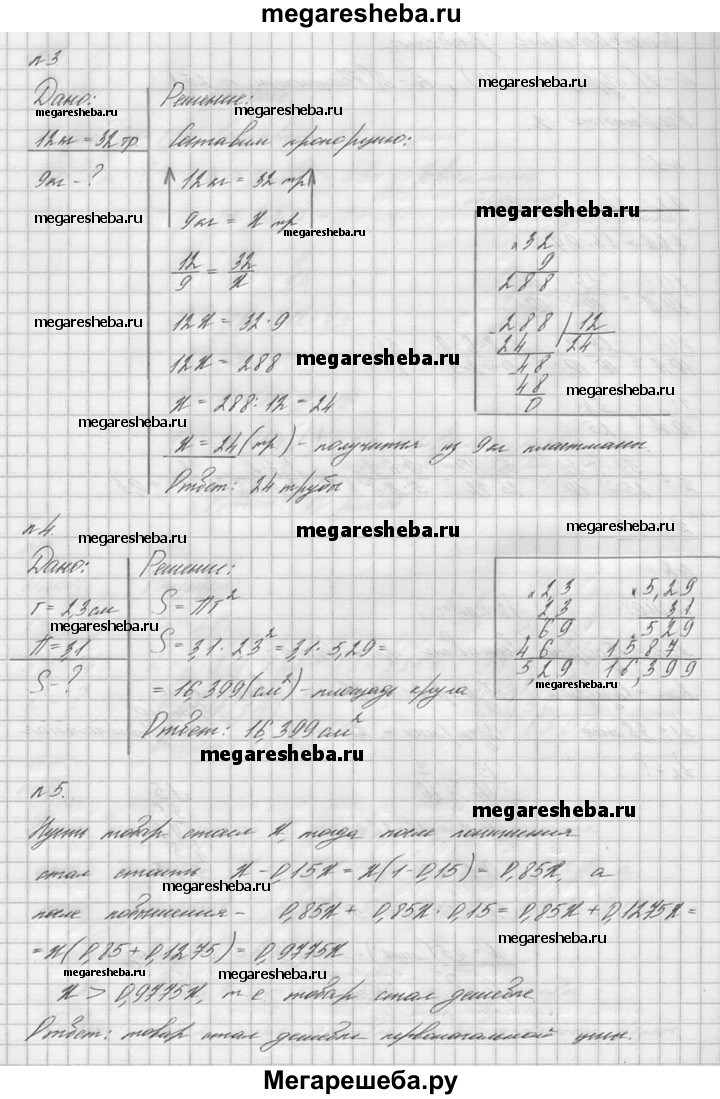 megaresheba.ru
n3
Дано: Решение: megaresheba.ru
megaresheba.ru megaresheba.ru
12кг = 32 тр. Составим пропорцию:
9кг - ? 12 кг = 32 тр
megaresheba.ru 9 кг = x тр megaresheba.ru megaresheba.ru
12/9 = 32/x megaresheba.ru
× 32
9
288
megaresheba.ru 12x = 32·9
12x = 288 megaresheba.ru
x = 288 : 12 = 24
- 288 | 12
24 | 24
48
48
0
megaresheba.ru
megaresheba.ru
x = 24 (тр) - получится из 9кг пластмассы.
Ответ: 24 трубы megaresheba.ru
n4. megaresheba.ru megaresheba.ru megaresheba.ru
Дано: Решение:
r = 2,3 см S = Пr²
megaresheba.ru
П = 3,1 S = 3,1 · 2,3² = 3,1 · 5,29 =
S - ? = 16,399 (см²) - площадь круга
× 2,3
2,3
69
46
5,29
× 5,29
3,1
529
1587
16,399
megaresheba.ru
Ответ: 16,399 см²
megaresheba.ru
n5. megaresheba.ru
Пусть товар стоил x, тогда после понижения
стал стоить x - 0,15x = x(1 - 0,15) = 0,85x, а
megaresheba.ru
после повышения - 0,85x + 0,85x · 0,15 = 0,85x + 0,1275x =
megaresheba.ru
= x(0,85 + 0,1275) = 0,9775x
megaresheba.ru megaresheba.ru
x > 0,9775x, т е товар стал дешевле
Ответ: товар стал дешевле первоначальной цены.
Мегарешеба.ру